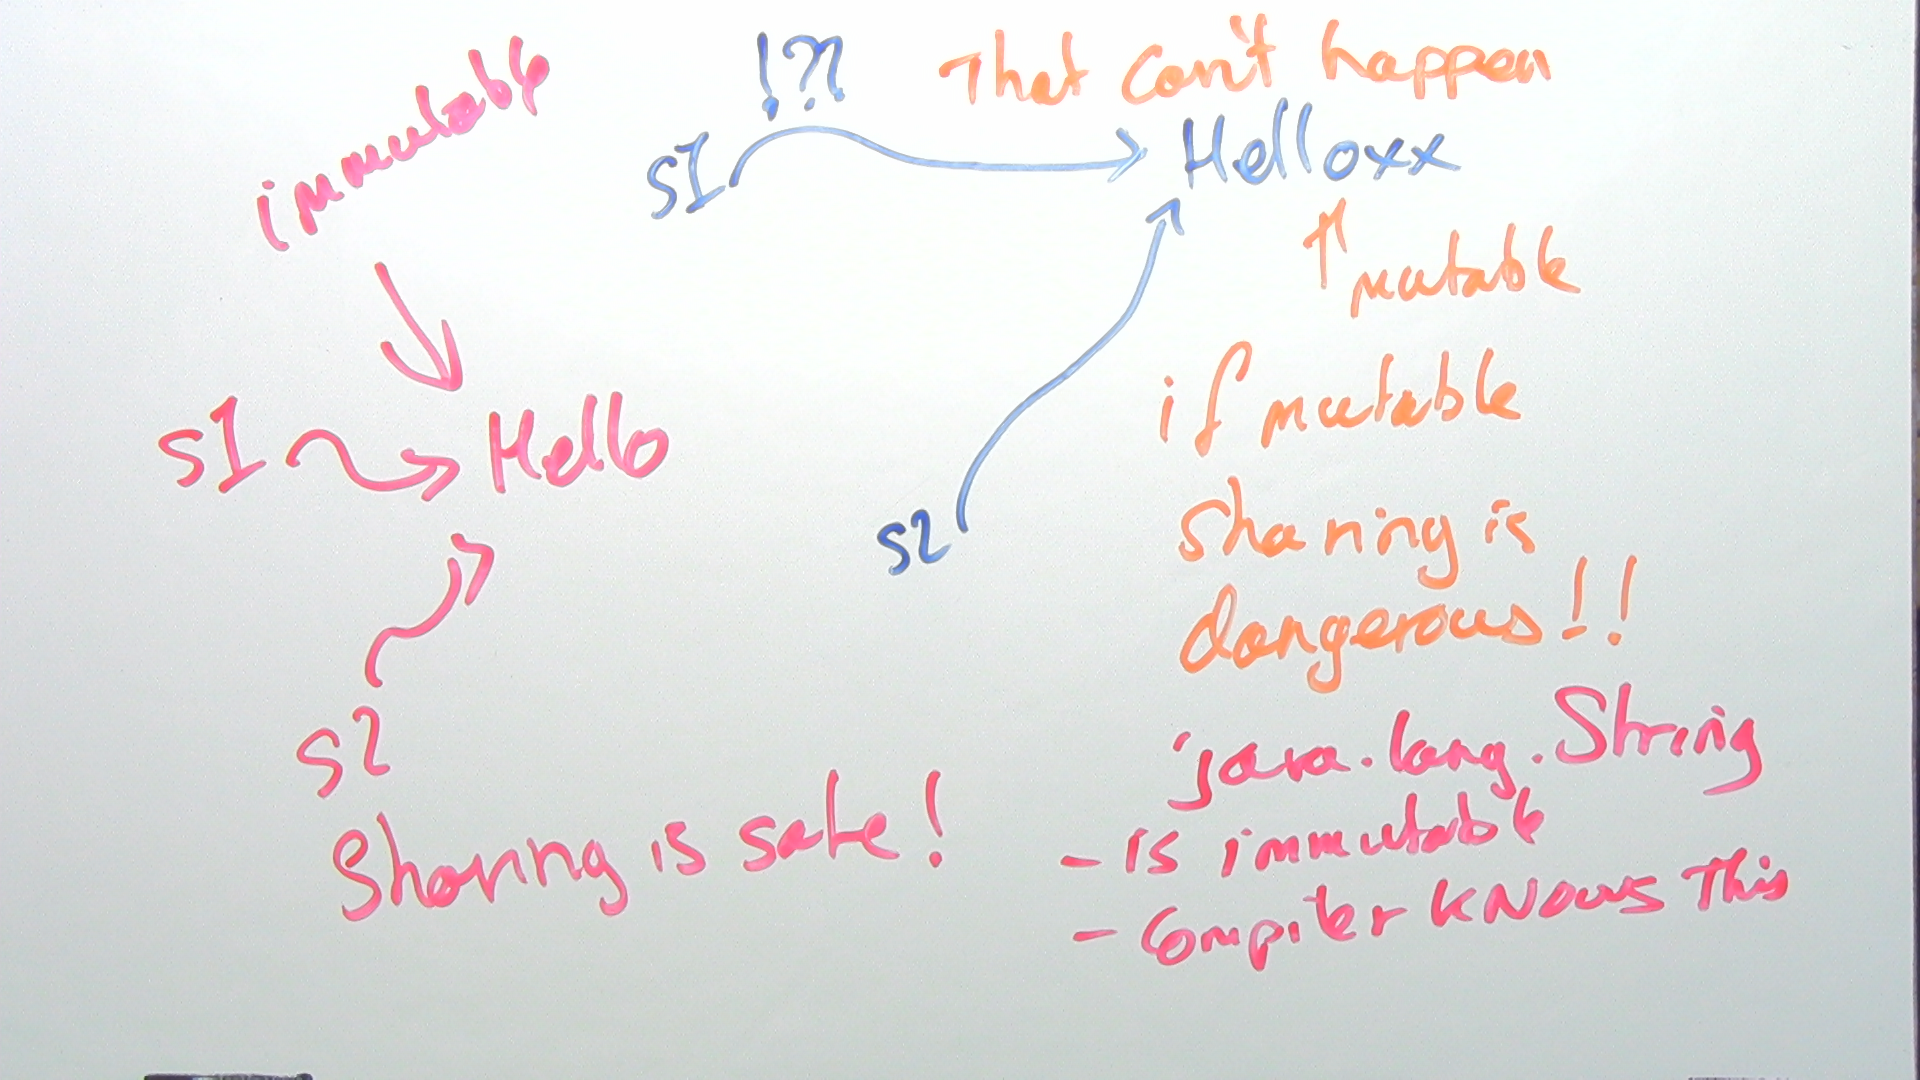 immutable
s1 Hello
s2
Sharing is safe!
!?!
That can't happen
s1 Helloxx
s2
mutable
if mutable
sharing is
dangerous!!
java.lang.String
- is immutable
- compiler knows this